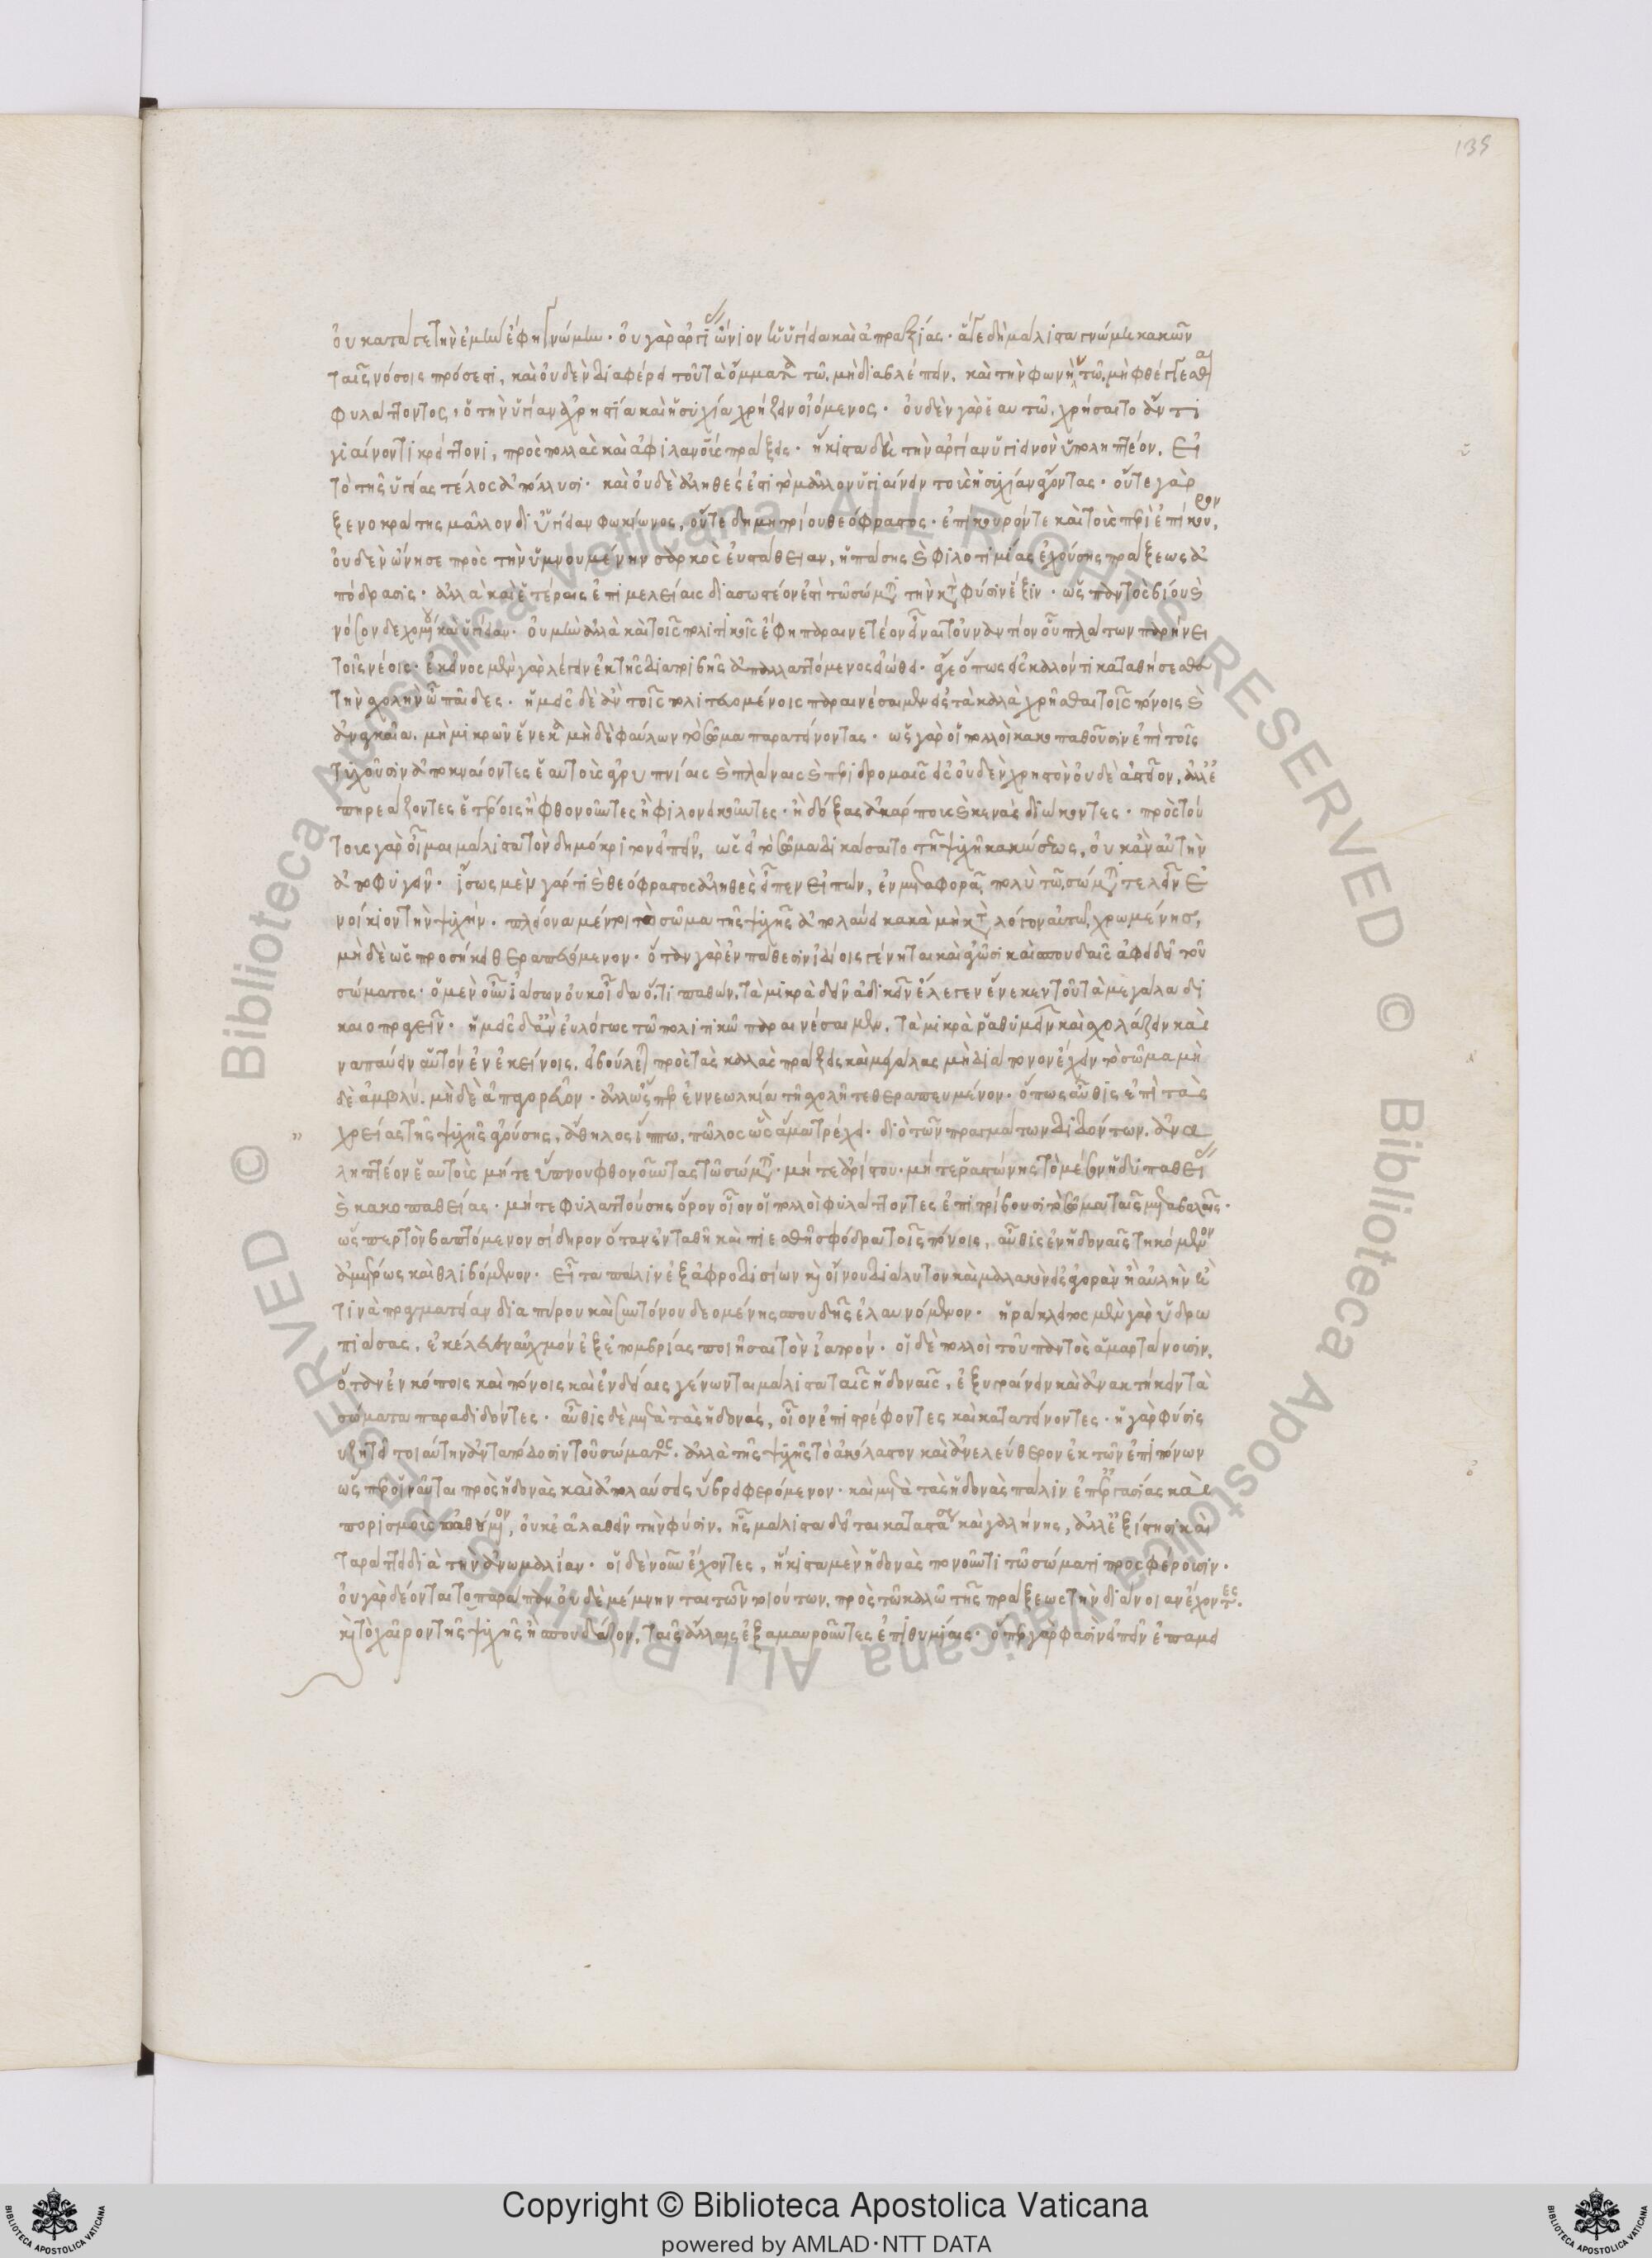 οὐ κατά γε τὴν ἐμὴν ἔφη γνώμην· οὐ γὰρ ἀργίας ὤνιον ἡ ὑγίεια καὶ ἀπραξίας· ἅ γε δὴ μάλιστα γνώμῃ κακῶν
ταῖς νόσοις πρόσεστι, καὶ οὐδὲν διαφέρει τοῦ τὰ ὄμματα τῷ μὴ διαβλέπειν, καὶ τὴν φωνὴν τῷ μὴ φθέγγεσθαι
φυλάττοντος, ὁ τὴν ὑγίειαν ἀχρηστίᾳ καὶ ἡσυχίᾳ χρήζειν οἰόμενος· οὐδὲν γὰρ ἑαυτῷ χρήσαιτο ἄν τι
γιαίνοντι κρείττονι, πρὸς πολλὰς καὶ ἀφιλανους πράξεις· ἥκιστα δὲ τὴν ἀργίαν ὑγιεινὸν ὑποληπτέον, εἰ
τὸ τῆς ὑγιείας τέλος ἀπόλλυσι· καὶ οὐδὲ ἀληθές ἐστι τὸ μᾶλλον ὑγιαίνειν τοὺς ἡσυχίαν ἄγοντας· οὔτε γὰρ
ξενοκράτης μᾶλλον διυγίαινεν φωκίωνος, οὔτε δημητρίου θεόφραστος· ἐπίκουρόν τε καὶ τοὺς περὶ ἐπίκουρον,
οὐδὲν ὤνησε πρὸς τὴν ὑμνουμένην σαρκὸς εὐστάθειαν, ἡ πάσης καὶ φιλοτιμίας ἐχούσης πράξεως ἀ
πόδρασις· ἀλλὰ καὶ ἑτέραις ἐπιμελείαις διασωστέον ἐστὶ τῷ σώματι τὴν κατὰ φύσιν ἕξιν· ὡς παντὸς βίου καὶ
νόσον δεχομένου καὶ ὑγίειαν· οὐ μὴν ἀλλὰ καὶ τοῖς πολιτικοῖς ἔφη παραινετέον εἶναι τοὐναντίον οὗ πλάτων παρῄνει
τοῖς νέοις· ἐκεῖνος μὲν γὰρ λέγειν ἐκ τῆς διατριβῆς ἀπαλλαττόμενος εἰώθει· ἄγε ὅπως εἰς καλόν τι καταθήσεσθε
τὴν σχολὴν ὦ παῖδες· ἡμεῖς δὲ ἂν τοῖς πολιτευομένοις παραινέσαιμεν εἰς τὰ καλὰ χρῆσθαι τοῖς πόνοις καὶ
ἀναγκαῖα. μὴ μικρῶν ἕνεκα μηδὲ φαύλων τὸ σῶμα παρατείνοντας· ὡς γὰρ οἱ πολλοὶ κακοπαθοῦσιν ἐπὶ τοῖς
τυχοῦσιν ἀποκναίοντες ἑαυτοὺς ἀγρυπνίαις καὶ πλάναις καὶ περιδρομαῖς εἰς οὐδὲν χρηστὸν οὐδὲ ἀστεῖον, ἀλλ' ἐ
πηρεάζοντες ἑτέροις ἢ φθονοῦντες ἢ φιλονεικοῦντες· ἢ δόξας ἀκάρπους καὶ κενὰς διώκοντες· πρὸς τού
τους γὰρ οἶμαι μάλιστα τὸν δημόκριτον εἰπεῖν, ὡς εἰ τὸ σῶμα δικάσαιτο τῇ ψυχῇ κακώσεως, οὐκ ἂν αὐτὴν
ἀποφυγεῖν· ἴσως μὲν γάρ τι καὶ θεόφραστος ἀληθὲς εἶπεν εἰπών, ἐν μεταφορᾷ, πολὺ τῷ σώματι τελεῖν ἐ
νοίκιον τὴν ψυχήν· πλείονα μέντοι τὸ σῶμα τῆς ψυχῆς ἀπολαύει κακὰ μὴ κατὰ λόγον αὐτῷ χρωμένης,
μηδὲ ὡς προσήκει θεραπευόμενον· ὅταν γὰρ ἐν πάθεσιν ἰδίοις γένηται καὶ ἀγῶσι καὶ σπουδαῖς ἀφειδεῖ τοῦ
σώματος· ὁ μὲν οὖν ἰάσων οὐκ οἶδα ὅ,τι παθών, τὰ μικρὰ δεῖν ἀδικεῖν ἔλεγεν ἕνεκεν τοῦ τὰ μεγάλα δι
καιοπραγεῖν· ἡμεῖς δ' ἂν εὐλόγως τῷ πολιτικῷ παραινέσαιμεν, τὰ μικρὰ ῥαθυμεῖν καὶ σχολάζειν καὶ ἀ
ναπαύειν αὑτὸν ἐν ἐκείνοις, εἰ βούλεται πρὸς τὰς καλὰς πράξεις καὶ μεγάλας μὴ διάπονον ἔχειν τὸ σῶμα μη
δὲ ἀμβλύ. μηδὲ ἀπαγορεῦον· ἀλλ' ὥσπερ ἐν νεωλκίᾳ τῇ σχολῇ τεθεραπευμένον· ὅπως αὖθις ἐπὶ τὰς
χρείας τῆς ψυχῆς ἀγούσης, ἄθηλος ἵππῳ, πῶλος ὣς ἅμα τρέχει· διὸ τῶν πραγμάτων διδόντων. ἀνα
ληπτέον ἑαυτοὺς μήτε ὕπνου φθονοῦντας τῷ σώματι· μήτε ἀρίστου· μήτε ῥᾳστώνης τὸ μέσον ἡδυπαθείας
καὶ κακοπαθείας· μήτε φυλαττούσης ὅρον οἷον οἱ πολλοὶ φυλάττοντες ἐπιτρίβουσι τὸ σῶμα ταῖς μεταβολαῖς·
ὥσπερ τὸν βαπτόμενον σίδηρον ὅταν ἐνταθῇ καὶ πιεσθῇ σφόδρα τοῖς πόνοις, αὖθις ἐν ἡδοναῖς τηκόμενον
ἀμέτρως καὶ θλιβόμενον· εἶτα πάλιν ἐξ ἀφροδισίων καὶ οἴνου διάλυτον καὶ μαλακὸν εἰς ἀγορὰν ἢ αὐλὴν ἤ
τινα πραγματείαν διαπύρου καὶ συντόνου δεομένης σπουδῆς ἐλαυνόμενον· ἡράκλειτος μὲν γὰρ ὑδρω
πιάσας, ἐκέλευεν αὐχμὸν ἐξ ἐπομβρίας ποιῆσαι τὸν ἰατρόν· οἱ δὲ πολλοὶ τοῦ παντὸς ἁμαρτάνουσιν,
ὅταν ἐν κόποις καὶ πόνοις καὶ ἐνδείαις γένωνται μάλιστα ταῖς ἡδοναῖς, ἐξυγραίνειν καὶ ἀνακτήκειν τὰ
σώματα παραδιδόντες· αὖθις δὲ μετὰ τὰς ἡδονάς, οἷον ἐπιστρέφοντες καὶ κατατείνοντες· ἡ γὰρ φύσις
οὐ ζητεῖ τοιαύτην ἀνταπόδοσιν τοῦ σώματος. ἀλλὰ τῆς ψυχῆς τὸ ἀκόλαστον καὶ ἀνελεύθερον ἐκ τῶν ἐπιπόνων
ὥσπερ οἱ ναῦται πρὸς ἡδονὰς καὶ ἀπολαύσεις ὕβρει φερόμενον· καὶ μετὰ τὰς ἡδονὰς πάλιν ἐπ' ἐργασίας καὶ
πορισμοὺς ὠθούμενον, οὐκ ἐᾷ λαθεῖν τὴν φύσιν. ἧς μάλιστα δεῖται καταστάσεως καὶ γαλήνης, ἀλλ' ἐξίστησι καὶ
ταράττει διὰ τὴν ἀνωμαλίαν· οἱ δὲ νοῦν ἔχοντες, ἥκιστα μὲν ἡδονὰς πονοῦντι τῷ σώματι προσφέρουσιν·
οὐ γὰρ δέονται τοπαράπαν οὐδὲ μέμνηνται τῶν τοιούτων. πρὸς τῷ καλῷ τῆς πράξεως τὴν διάνοιαν ἔχοντες·
καὶ τὸ χαῖρον τῆς ψυχῆς ἢ σπουδάζον. ταῖς ἄλλαις ἐξαμαυροῦντες ἐπιθυμίαις· ὅπερ γὰρ φασὶν εἰπεῖν ἐπαμει
139
Copyright © Biblioteca Apostolica Vaticana
powered by AMLAD·NTT DATA